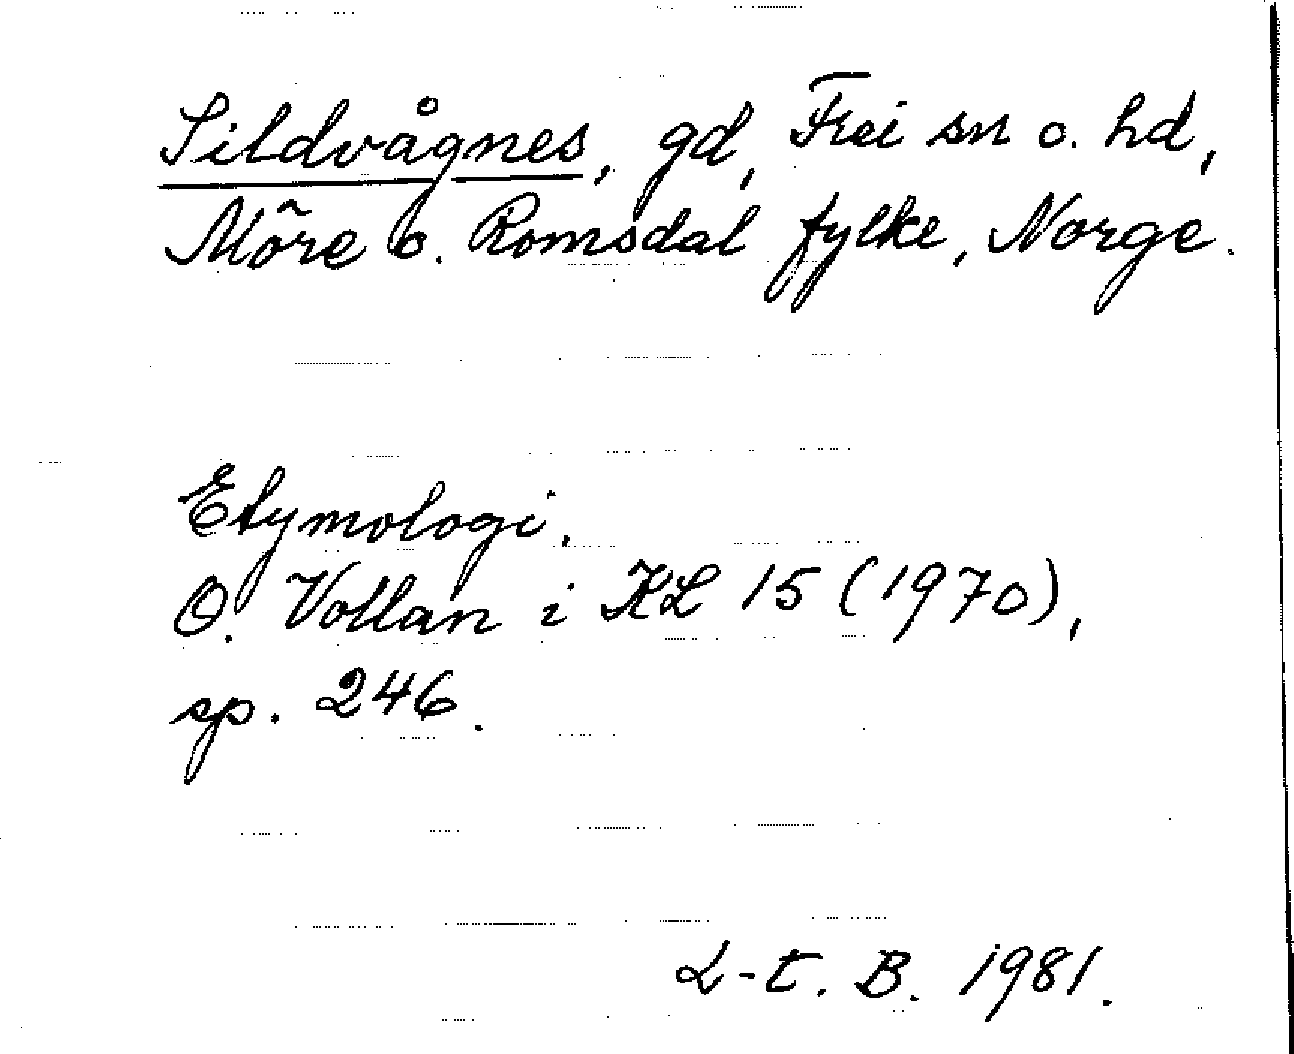 Sildvågnes, gd, Frei sn o. hd,
Möre o. Romsdal fylke, Norge.
Etymologi.
O. Vollan i KL 15 (1970),
sp. 246.
L-t. B. 1981.